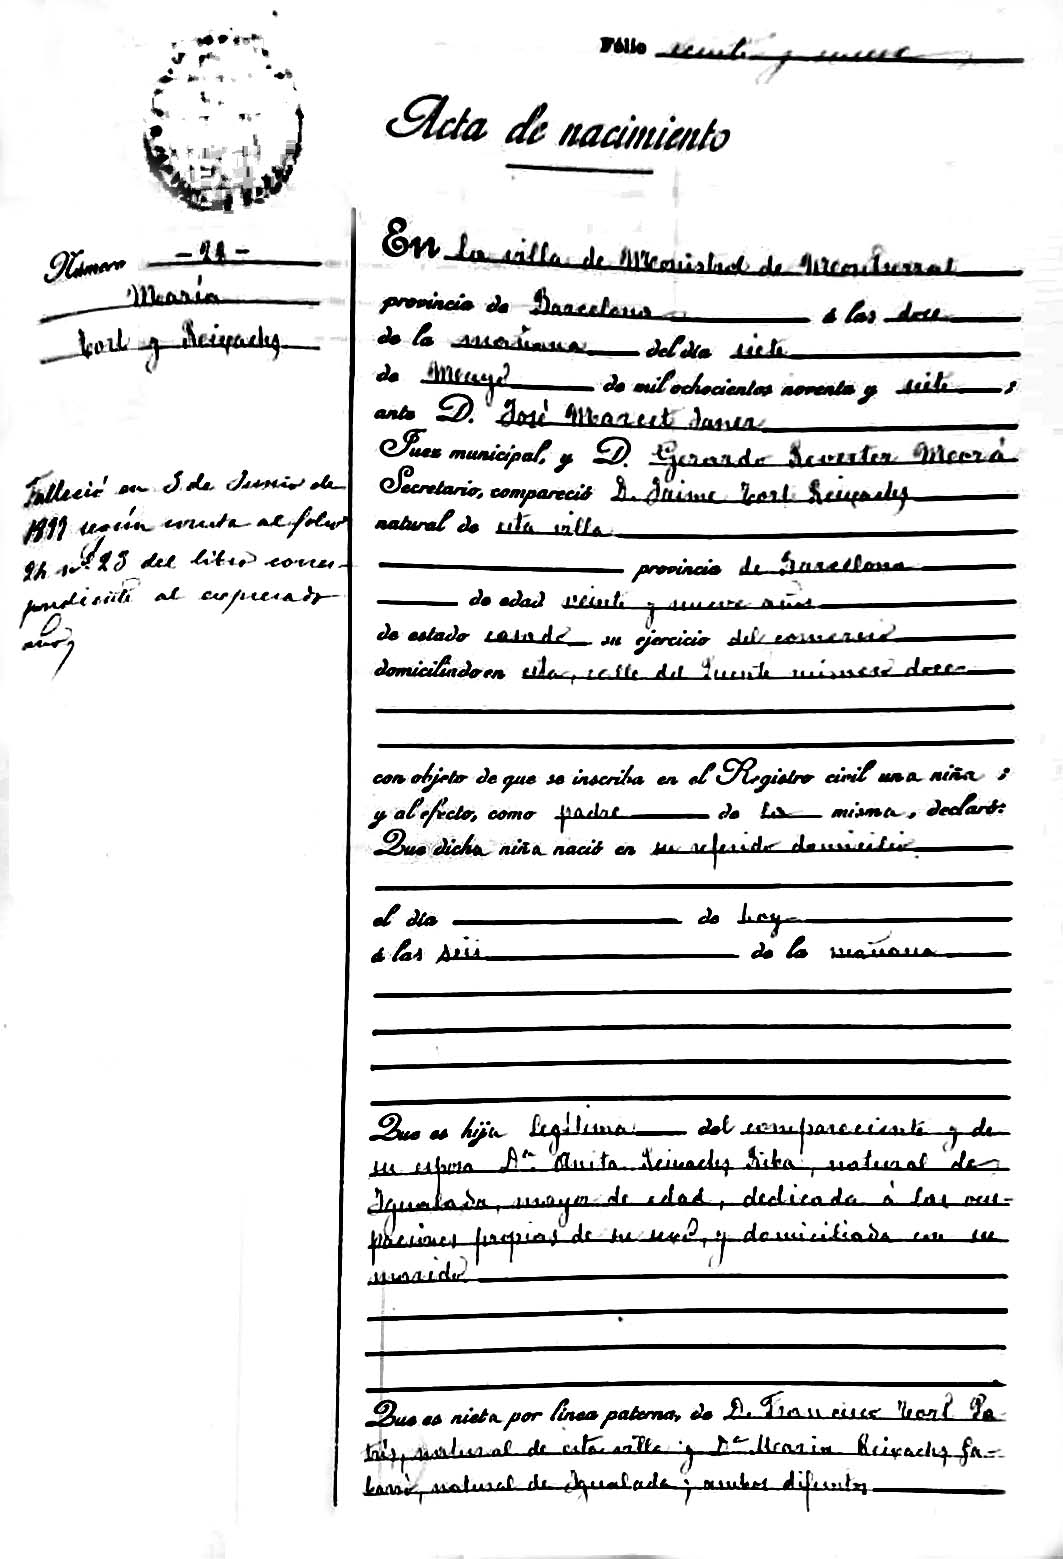 Fólio veinte y nueve
Acta de nacimiento
Número - 28 -
María
Torl y Reixachs
Falleció en 3 de Junio de
1899 según consta al folio
24 nº 23 del libro corres-
pondiente al expresado
año,
En la villa de Monistrol de Montserrat
provincia de Barcelona á las doce
de la mañana del día siete
de Mayo de mil ochocientos noventa y siete ;
ante D. José Marcet Janer
Juez municipal, y D. Gerardo Reverter Morá
Secretario, compareció D. Jaime Torl Reixachs
natural de esta villa
provincia de Barcelona
de edad veinte y nueve años
de estado casado su ejercicio del comercio
domiciliado en esta, calle del Puente número doce
con objeto de que se inscriba en el Registro civil una niña ;
y al efecto, como padre de la misma, declaró:
Que dicha niña nació en su referido domicilio
el día de hoy
á las seis de la mañana
Que es hija legítima del compareciente y de
su esposa Dª Anita Reixachs Riba, natural de
Igualada, mayor de edad, dedicada á las ocu-
paciones propias de su sexo, y domiciliada con su
marido
Que es nieta por línea paterna, de D. Francisco Torl Pa-
trís, natural de esta villa y Dª María Reixachs
natural de Igualada; ambos difuntos